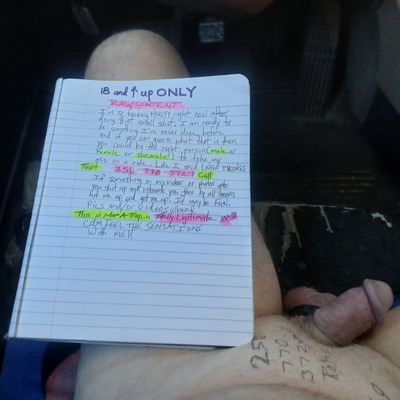 18 and ↑ up ONLY
RAW CONTENT
I'm so fucking HORNY right now after
doing that small shot. I am ready to
do something I've never done before
and if you can guess what that is then
you could be the right person (male or
female or shemale) to take my
ass on a ride. Like I said (NEW THINGS)
Text 256-770-3727 Call
If something in my videos or photos gets
you
hit me up and get me up! It may be Fun.
Pics and/or videos
This is Not-A-Trap... Totally Legitimate 100%
CUM FEEL THE SENSATIONS
With ME!!
256
770
372